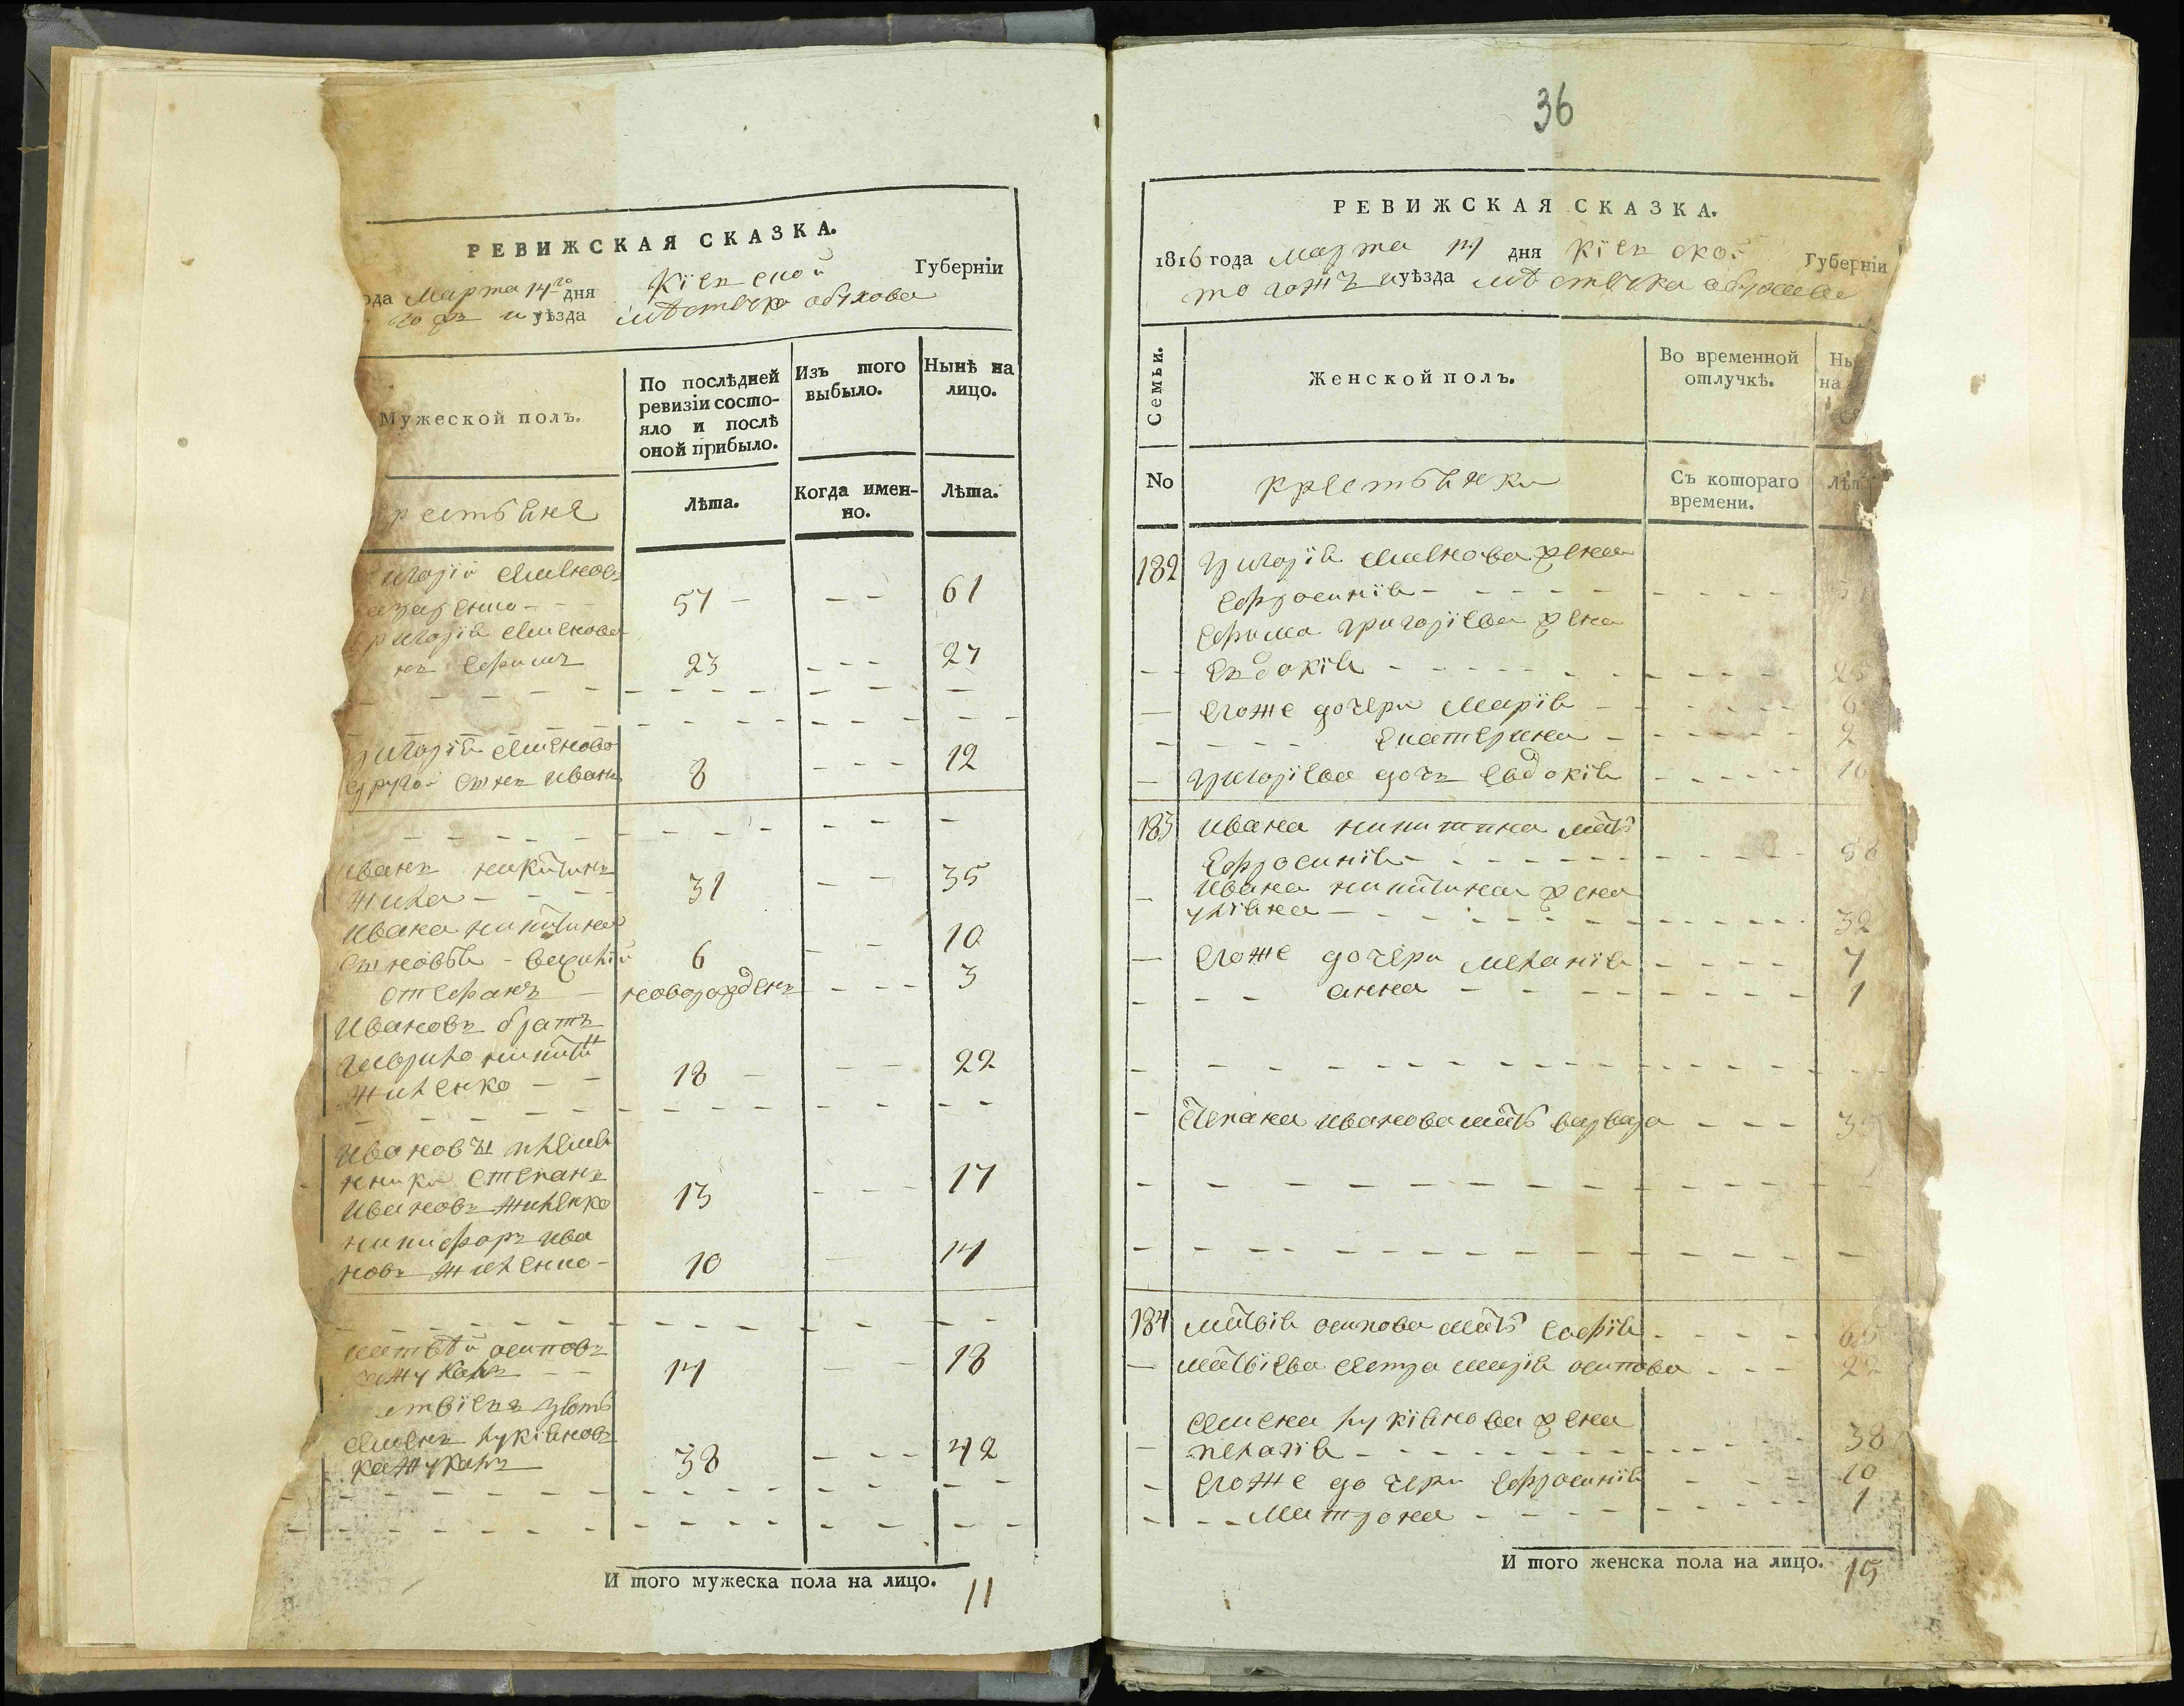 РЕВИЖСКАЯ СКАЗКА.
ода Марта 14го дня Кіевской Губерніи
го жъ и уѣзда мѣстечка обухова
Мужеской полъ.
По послѣдней ревизіи состо-
яло и послѣ
оной прибыло.
Изъ того
выбыло.
Нынѣ на
лицо.
рестьяне
Лѣта.
Когда имен-
но.
Лѣта.
игорій Семеновъ
57 - - - 61
ригорія Семенова
нъ Ефимъ 23 - - - 27
григорія Семенова
другой сынъ иванъ 8 - - - 12
иванъ никитинъ
жила - - - 31 - - 35
ивана никитина
сыновья - 6 - - 10
стефанъ - новорожденъ - - - 3
ивановъ братъ
гаврило никитинъ
жиленко - - 18 - - - 22
ивановы племя
нники степанъ
ивановъ жиленко 13 - - - 17
никифоръ ива
новъ жиленко - 10 - 14
матвѣй осиповъ
14 - - 18
атвіевъ зять
Семенъ лукіяновъ
кажукалъ 38 - - - 42
И того мужеска пола на лицо. 11
36
РЕВИЖСКАЯ СКАЗКА.
1816 года марта 14 дня Кіевской Губерніи
того жъ и уѣзда мѣстечка обухова
Семьи.
Женской полъ.
Во временной
отлучкѣ.
Ны
на
No
крестьянки
Съ котораго
времени.
Лѣт
182 григорія Семенова жена
Ефросинія - - - - -
Ефима григоріева жена
Евдокія - - - - - 25
Егоже дочери Марія - - - - 6
- - - - Екатерина - - - - 2
григоріева дочь Евдокія - - - - - 16
183 ивана никитина мать
Ефросинія - - - - - 58
ивана никитина жена
уліяна - - - - - 32
Егоже дочери меланія - - - - 7
- - - анна - - - - 1
степана иванова мать варвара - - - 35
184 матвія осипова мать софія - - - - 65
матвіева сестра марія осипова - - - 22
Семена лукіянова жена
пелагія - - - - - 38
Егоже дочери Ефросинія - - 10
- - - Матрона - - - - 1
И того женска пола на лицо. 15